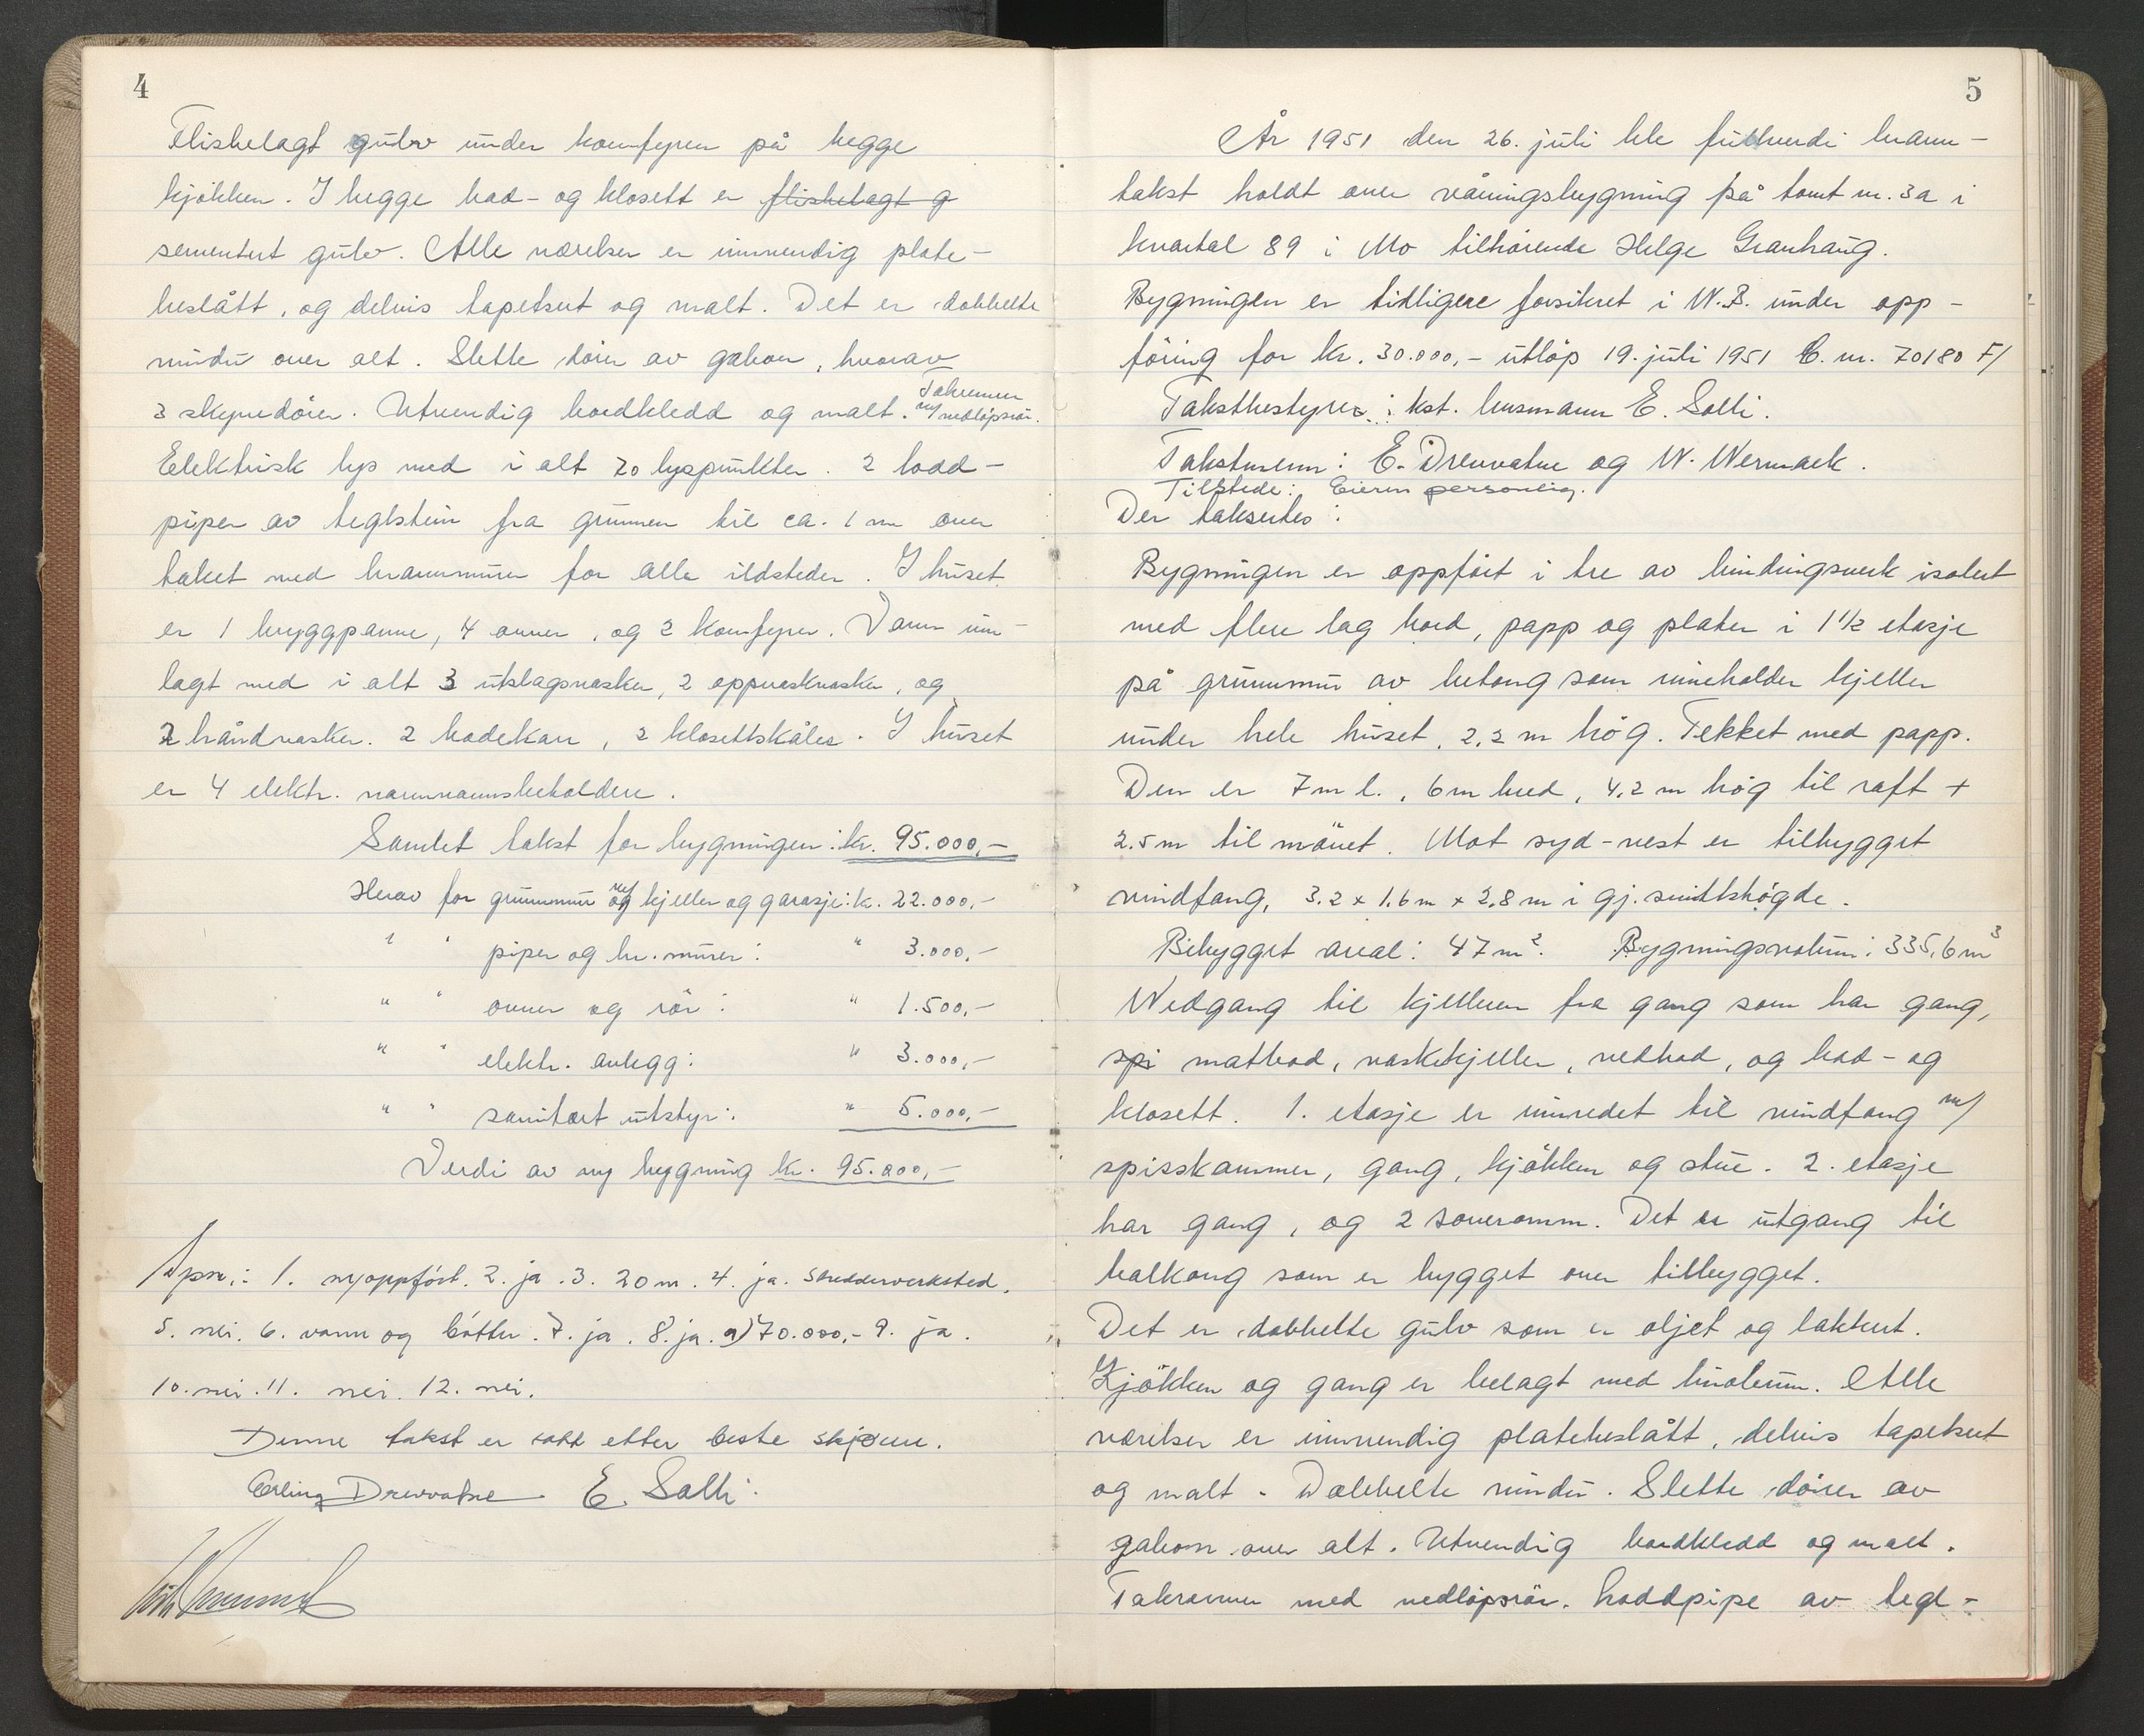 4
Flisbelagt gulv under komfyren på begge
kjökken. I begge bad- og klosett er flisbelagt g
sementert gulv. Alle værelser er innvendig plate-
beslått, og delvis tapetsert og malt. Det er dobbelte
vindu over alt. Slette dörer av gabon, hvorav
3 skyvedörer. Utvendig bordkledd og malt. Takrenner m/ nedlöpsrör.
Elektrisk lys med i alt 20 lyspunkter. 2 lodd-
piper av teglstein fra grunnen til ca. 1 m over
taket med brannmurer for alle ildsteder. I huset
er 1 bryggpanne, 4 ovner, og 2 komfyrer. Vann inn-
lagt med i alt 3 utslagsvasker, 2 oppvaskvasker, og
2 håndvasker. 2 badekar, 2 klosettskåler. I huset
er 4 elektr. varmvannsbeholdere.
Samlet takst for bygningen: kr. 95.000,-
Herav for grunnmur og m/ kjeller og garasje: k. 22.000,-
" " piper og br. murer: " 3.000,-
" " ovner og rör: " 1.500,-
" " elektr. anlegg: " 3.000,-
" " sanitært utstyr: " 5.000,-
Verdi av ny bygning kr. 95.000,-
Spm.: 1. nyoppfört. 2. ja. 3. 20 m. 4. ja. Snedderverksted.
5. nei. 6. vann og bötter. 7. ja. 8. ja. a) 70.000,- 9. ja.
10. nei. 11. nei. 12. nei.
Denne takst er satt etter beste skjönn.
Erling Drevvatne E. Solli.
5
År 1951 den 26. juli ble fullverdi brann-
takst holdt over våningsbygning på tomt nr. 3a i
kvartal 89 i Mo tilhörende Helge Granhaug.
Bygningen er tidligere forsikret i N.B. under opp-
föring for kr. 30.000,- utlöp 19. juli 1951 B. nr. 70180 F/
Takstbestyrer: kst. lensmann E. Solli.
Takstmenn: E. Drevvatne og W. Wermack.
Tilstede: Eieren personlig.
Der taksertes:
Bygningen er oppfört i tre av bindingsverk isolert
med flere lag bord, papp og plater i 1 1/2 etasje
på grunnmur av betong som inneholder kjeller
under hele huset, 2,2 m hög. Tekket med papp.
Den er 7 m l., 6 m bred, 4,2 m hög til raft +
2.5 m til mönet. Mot syd-vest er tilbygget
vindfang, 3.2 x 1.6 m x 2,8 m i gj. snittshögde.
Bebygget areal: 47 m². Bygningsvolum: 335,6 m³
Nedgang til kjelleren fra gang som har gang,
spi matbod, vaskekjeller, vedbod, og bad- og
klosett. 1. etasje er innredet til vindfang m/
spisskammer, gang, kjökken og stue. 2. etasje
har gang, og 2 soveromm. Det er utgang til
balkong som er bygget over tilbygget.
Det er dobbelte gulv som er oljet og lakkert.
Kjökken og gang er belagt med linoleum. Alle
værelser er innvendig platebeslått, delvis tapetsert
og malt. Dobbelte vindu. Slette dörer av
gabon over alt. Utvendig bordkledd og malt.
Takrenner med nedlöpsrör. Loddpipe av tegl-